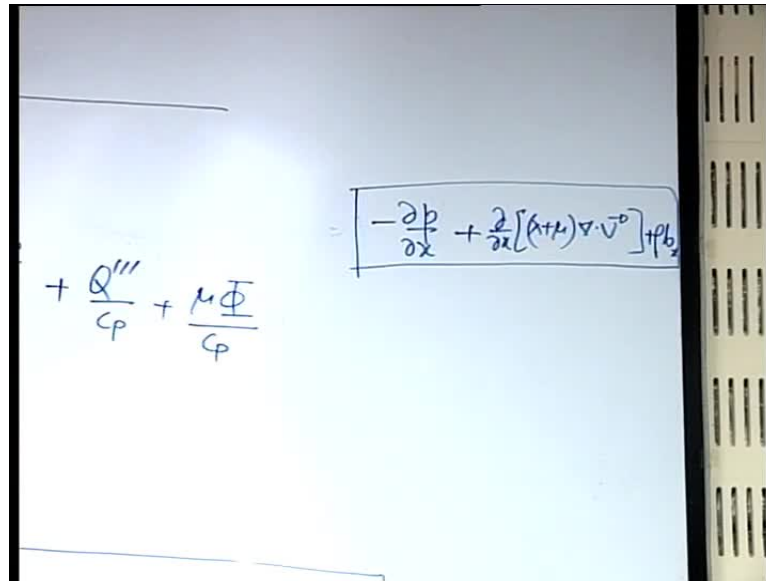 = -∂p/∂x + ∂/∂x[(λ+μ)∇·V⃗] + ρbₓ
+ Q'''/Cp + μΦ/Cp